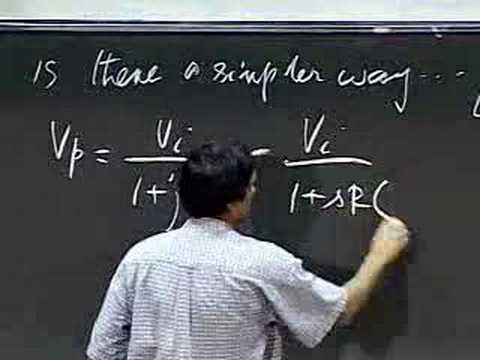 is there a simpler way...
Vp = Vi / 1+j = Vi / 1+sRC